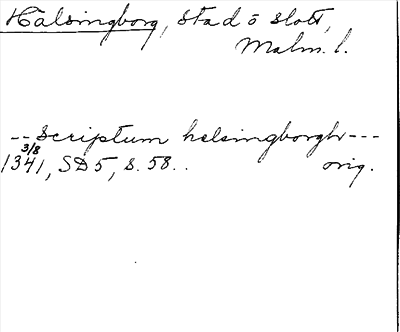 Hälsingborg, stad ö slott,
Malm. l.
-- Scriptum helsingborgh ---
3/8
1341, SD 5, s. 58..
orig.